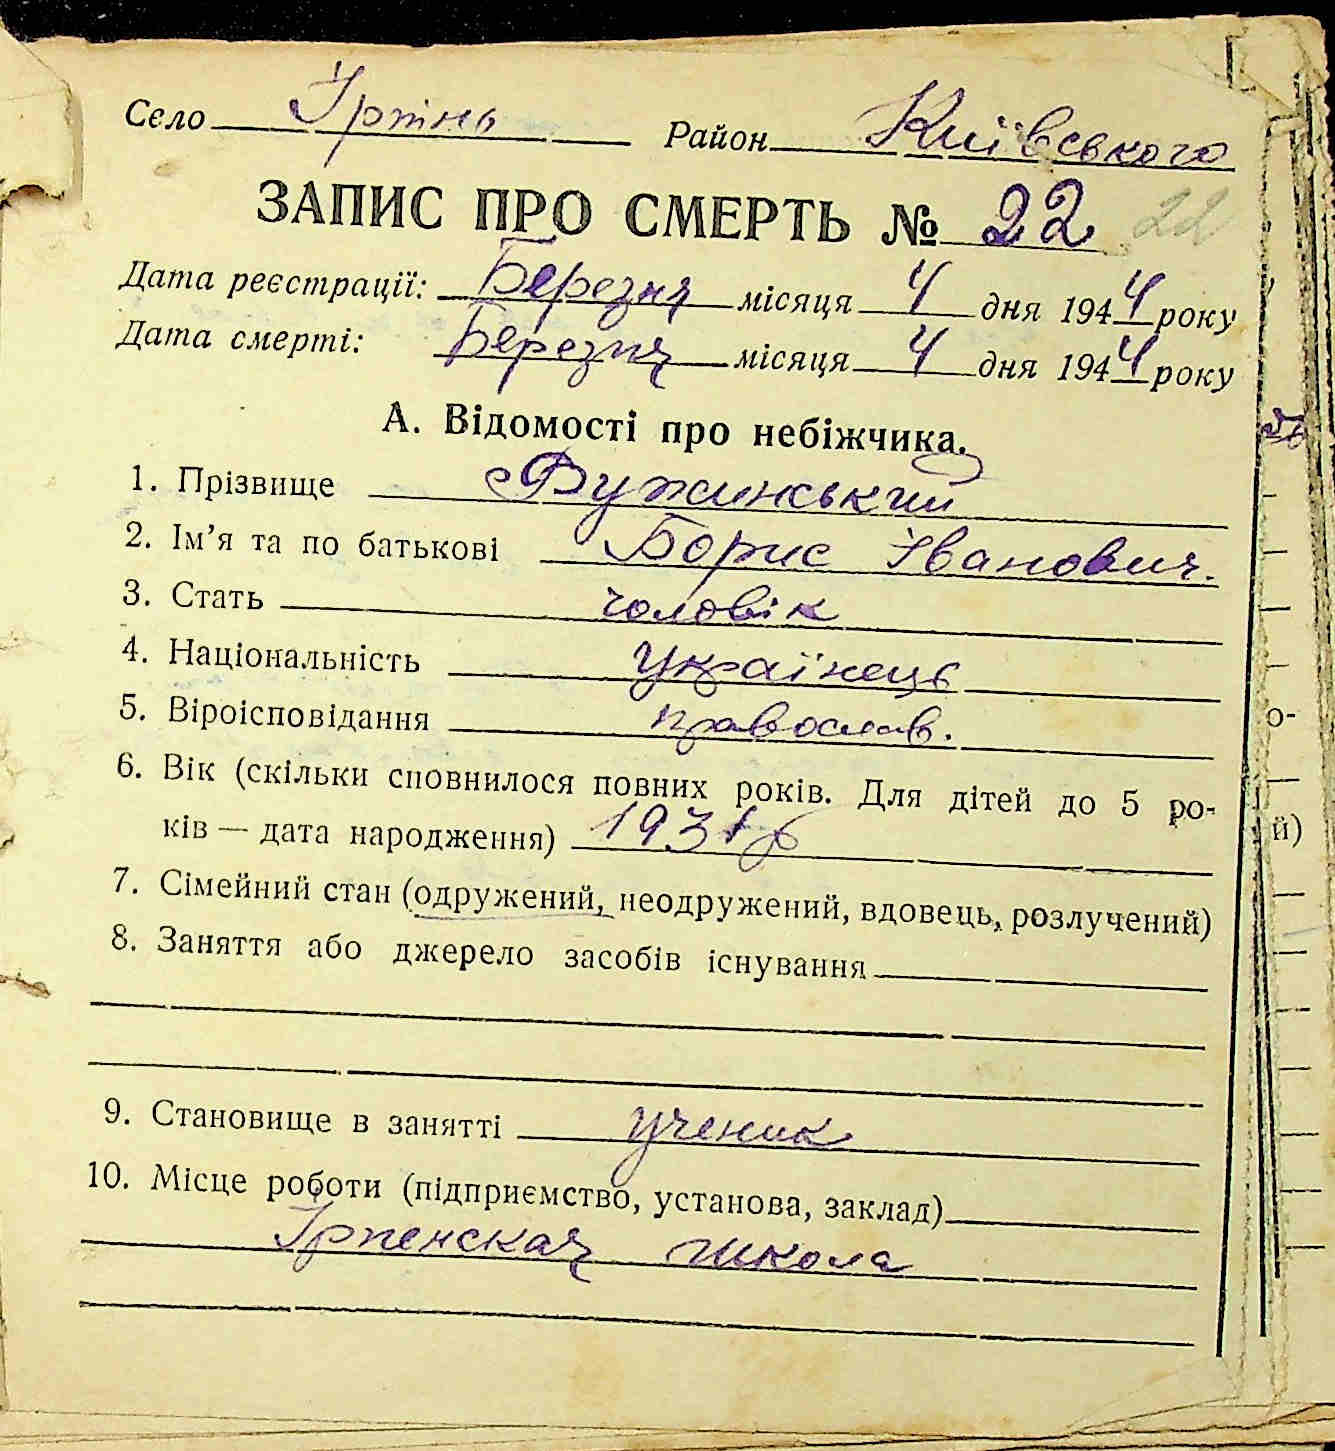 Село Ірпінь Район Київського
ЗАПИС ПРО СМЕРТЬ № 22 22
Дата реєстрації: Березня місяця 4 дня 1944 року
Дата смерті: Березня місяця 4 дня 1944 року
А. Відомості про небіжчика.
1. Прізвище
2. Ім’я та по батькові Борис Іванович.
3. Стать чоловік
4. Національність українець
5. Віроісповідання православ.
6. Вік (скільки сповнилося повних років. Для дітей до 5 ро-
ків — дата народження) 1931 р
7. Сімейний стан (одружений, неодружений, вдовець, розлучений)
8. Заняття або джерело засобів існування
9. Становище в занятті ученик
10. Місце роботи (підприємство, установа, заклад)
Ірпенская школа